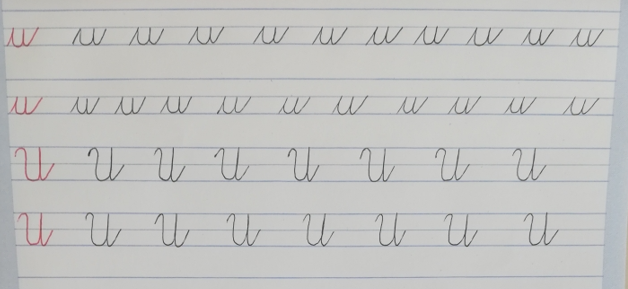 u u u u u u u u u u u
u u u u u u u u u u u
U U U U U U U U
U U U U U U U U